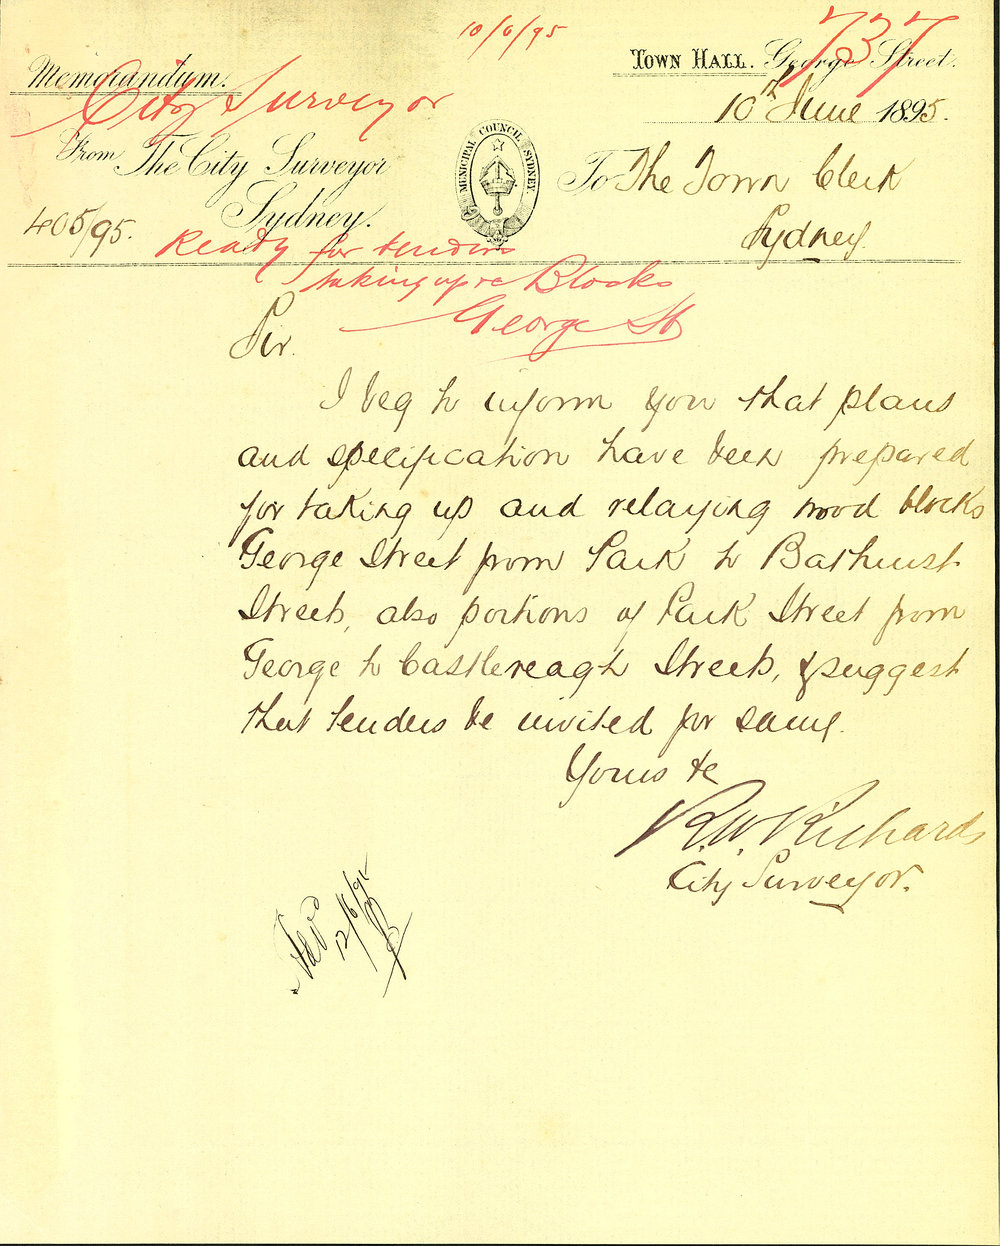 10/6/95
737
Memorandum.
City Surveyor
TOWN HALL. George Street.
10th June 1895.
From The City Surveyor
Sydney.
MUNICIPAL COUNCIL SYDNEY.
To The Town Clerk
Sydney.
405/95.
Ready for tenders
taking up &c Blocks
George St
Sir.
I beg to inform you that plans
and specification have been prepared
for taking up and relaying wood blocks
George Street from Park to Bathurst
Streets, also portions of Park Street from
George to Castlereagh Streets, & suggest
that tenders be invited for same.
Yours &c
R.W. Richards
City Surveyor.
12/6/95